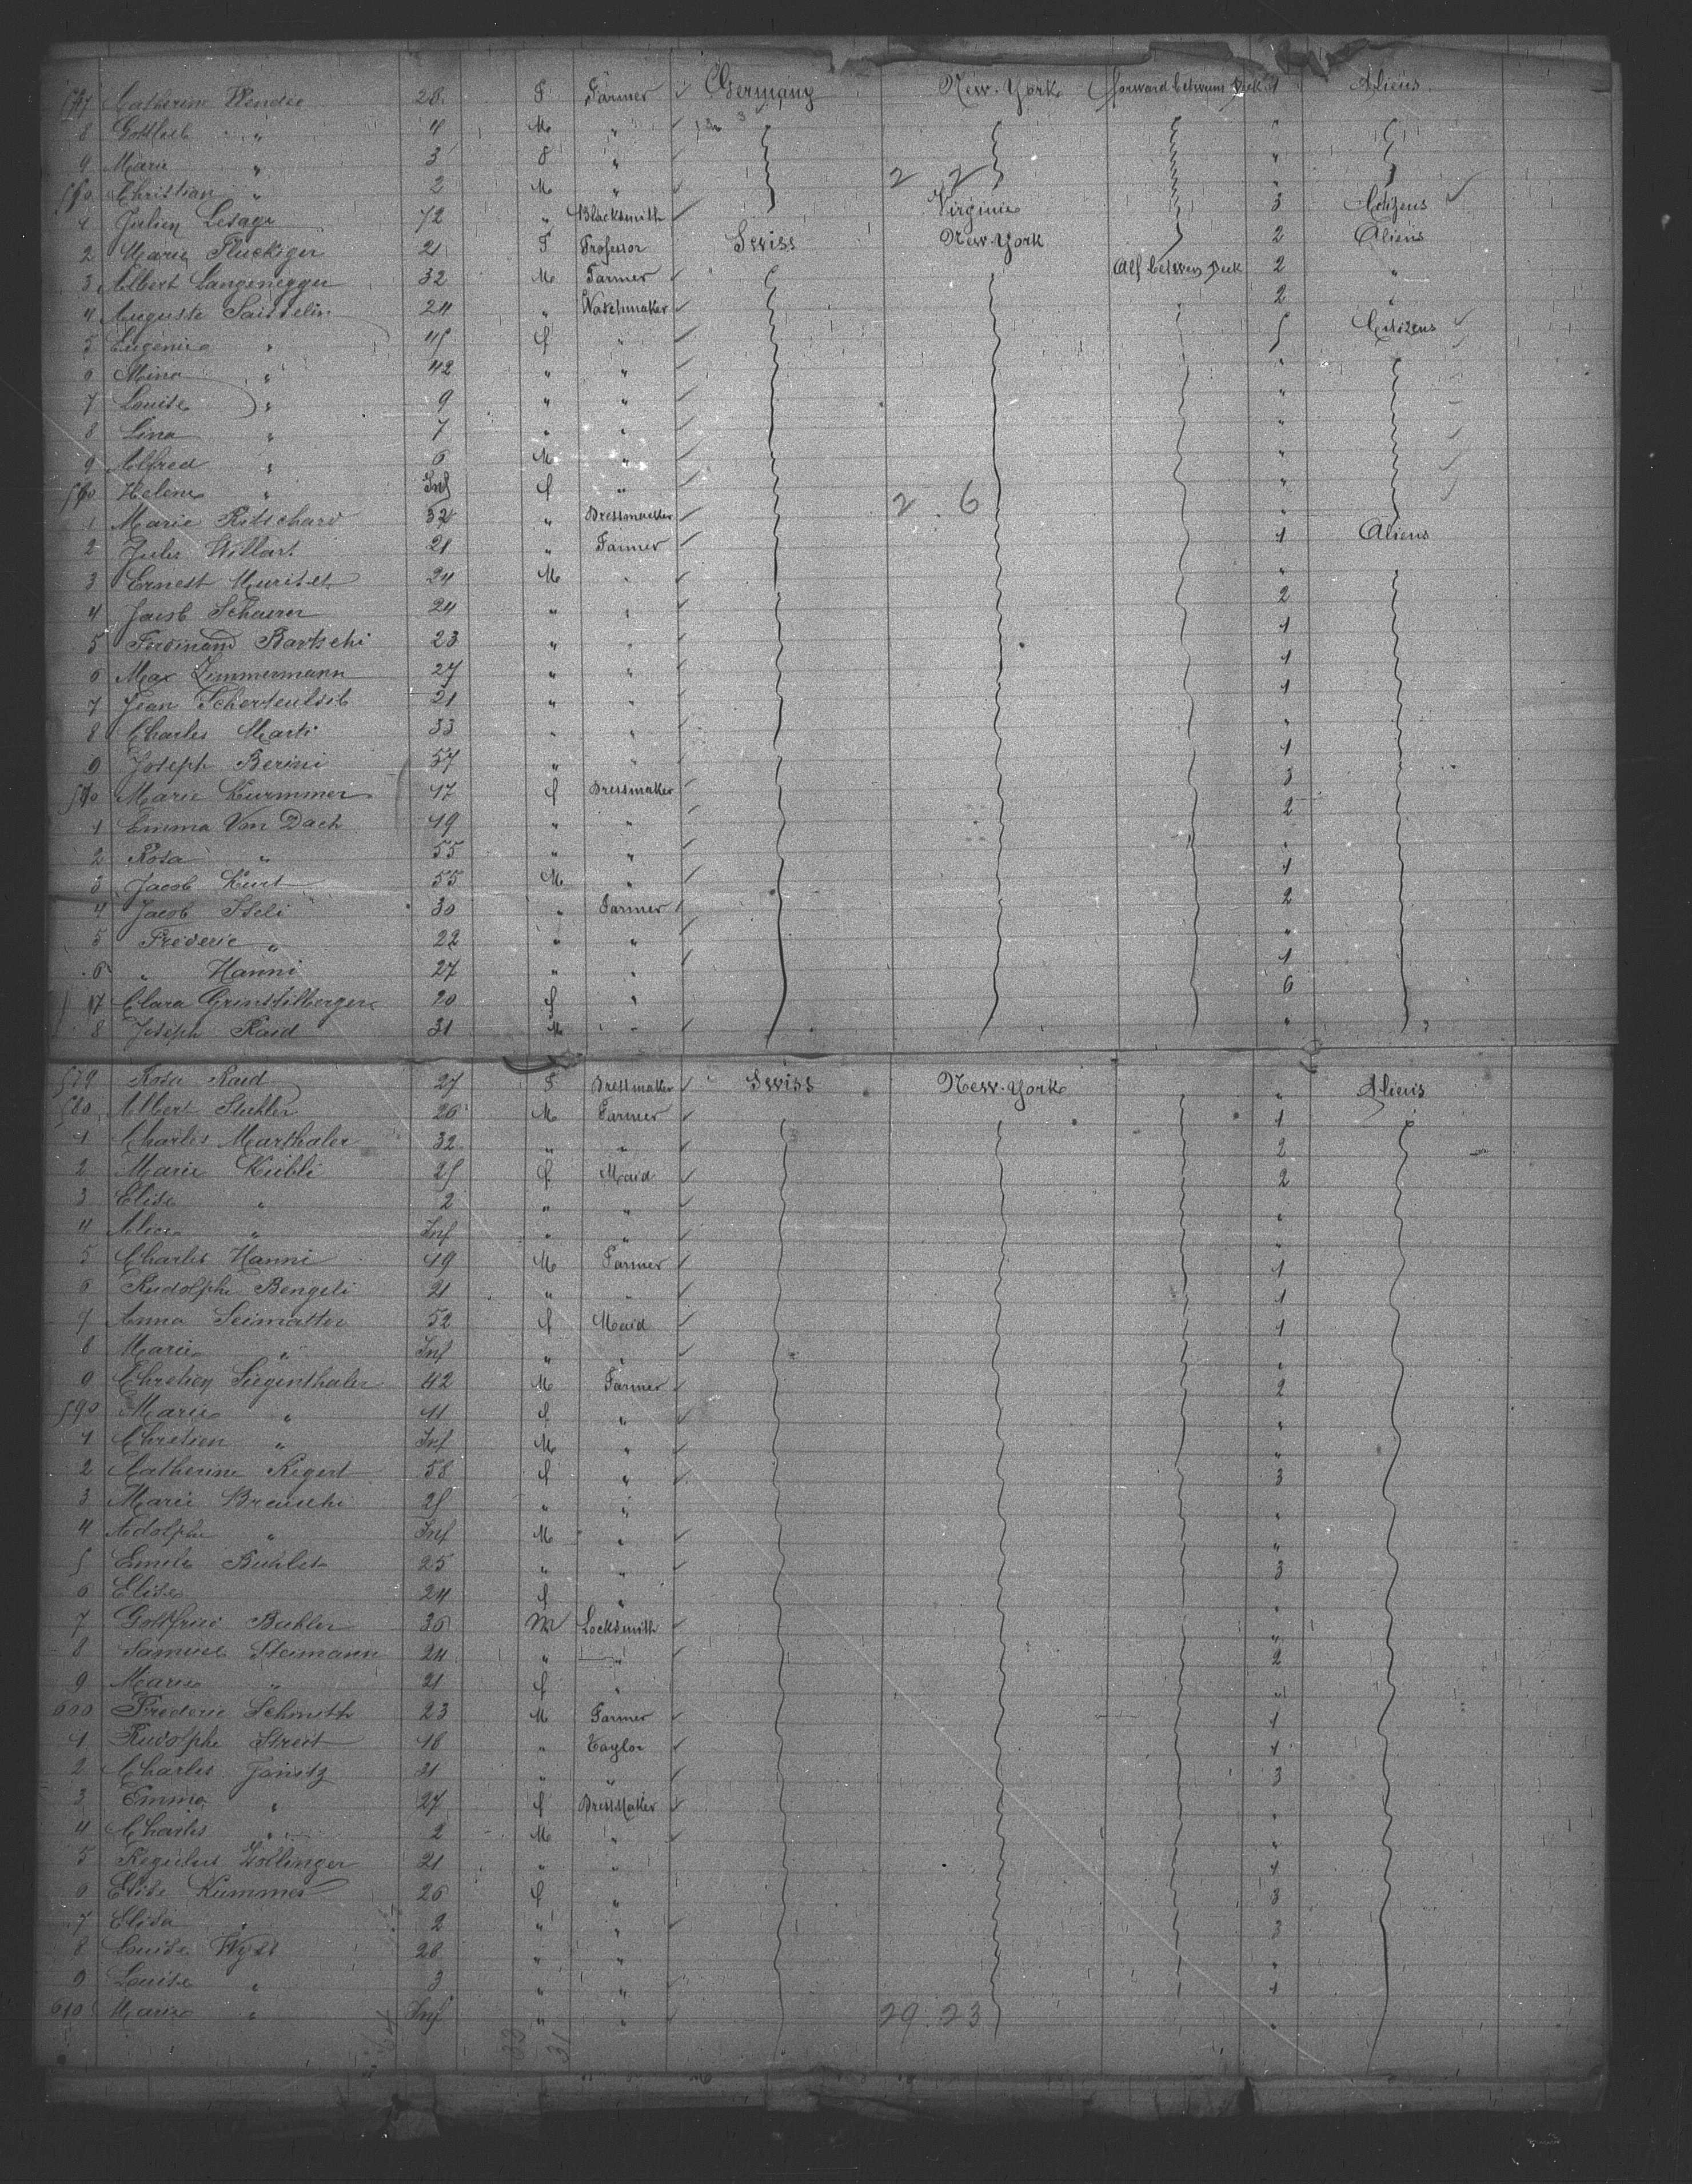 547 Catherine Wendle 28 F Farmer Germany New-York forward between Deck 1 Aliens
8 Gottlieb " 4 M " "
9 Marie " 3 F " "
550 Christian " 2 M " 2 2 "
1 Julien Lesage 72 " Blacksmith Virginie 3 Citizens
2 Marie Fluckiger 21 F Professor Swiss New-York 2 Aliens
3 Albert Langenegger 32 M Farmer Aft between Deck 2 "
4 Auguste 24 " Watchmaker 2 "
5 Eugenie " 45 f " 5 Citizens
6 Mina " 42 " " "
7 Louise " 9 " " "
8 Lina " 7 " " "
9 Alfred " 6 M " "
560 Helene " Inf f " " 2 6
1 Marie Ritschard 32 " Dressmaker "
2 Jules Willart 21 " Farmer 1 Aliens
3 Ernest 24 M " "
4 Jacob Scharer 24 " " 2
5 Ferdinand Bartschi 23 " " 1
6 Max Zimmermann 27 " " 1
7 Jean Schertenleib 21 " " 1
8 Charles Marti 33 " " "
9 Joseph Berini 57 " " 1
570 Marie Kummer 17 f Dressmaker 3
1 Emma Von Dach 19 " " 2
2 Rosa " 55 " " "
3 Jacob Kurt 55 M " 1
4 Jacob Steli 30 " Farmer 2
5 Frederic " 22 " " "
6 " Hanni 27 " " 1
7 Clara 20 f " 6
8 Joseph Raid 31 M " "
579 Rosa Raid 27 F Dressmaker Swiss New-York " Aliens
580 Albert Stuhler 26 M Farmer 1
1 Charles Marthaler 32 " " 2
2 Marie Kubli 25 f Maid 2
3 Elise " 2 " " "
4 Alice " Inf " " "
5 Charles Hanni 19 M Farmer 1
6 Rudolphe Bengeli 21 " " 1
7 Anna Seimatter 52 f Maid 1
8 Marie " Inf " " "
9 Chretien Siegenthaler 42 M Farmer 2
590 Marie " 41 f " "
1 Chretien " Inf M " "
2 Catherine Regert 58 f " 3
3 Marie 25 " " "
4 Adolphe " Inf M " "
5 Emile 25 " " 3
6 Elise 24 f " "
7 Gottfried Buhler 36 M Locksmith "
8 Samuel Steimann 24 " " 2
9 Marie " 21 f " "
600 Frederic Schmith 23 M Farmer 1
1 Rudolphe Streit 18 " Taylor 1
2 Charles 31 " " 3
3 Emma " 27 f DressMaker "
4 Charles " 2 M " "
5 Regulus Zollinger 21 " " 1
6 Elise Kummer 26 f " 3
7 Elisa " 2 " " 3
8 Louise Wyss 28 " " "
9 Louise " 3 " " 1
610 Marie " Inf " " 29.23 "
33 31